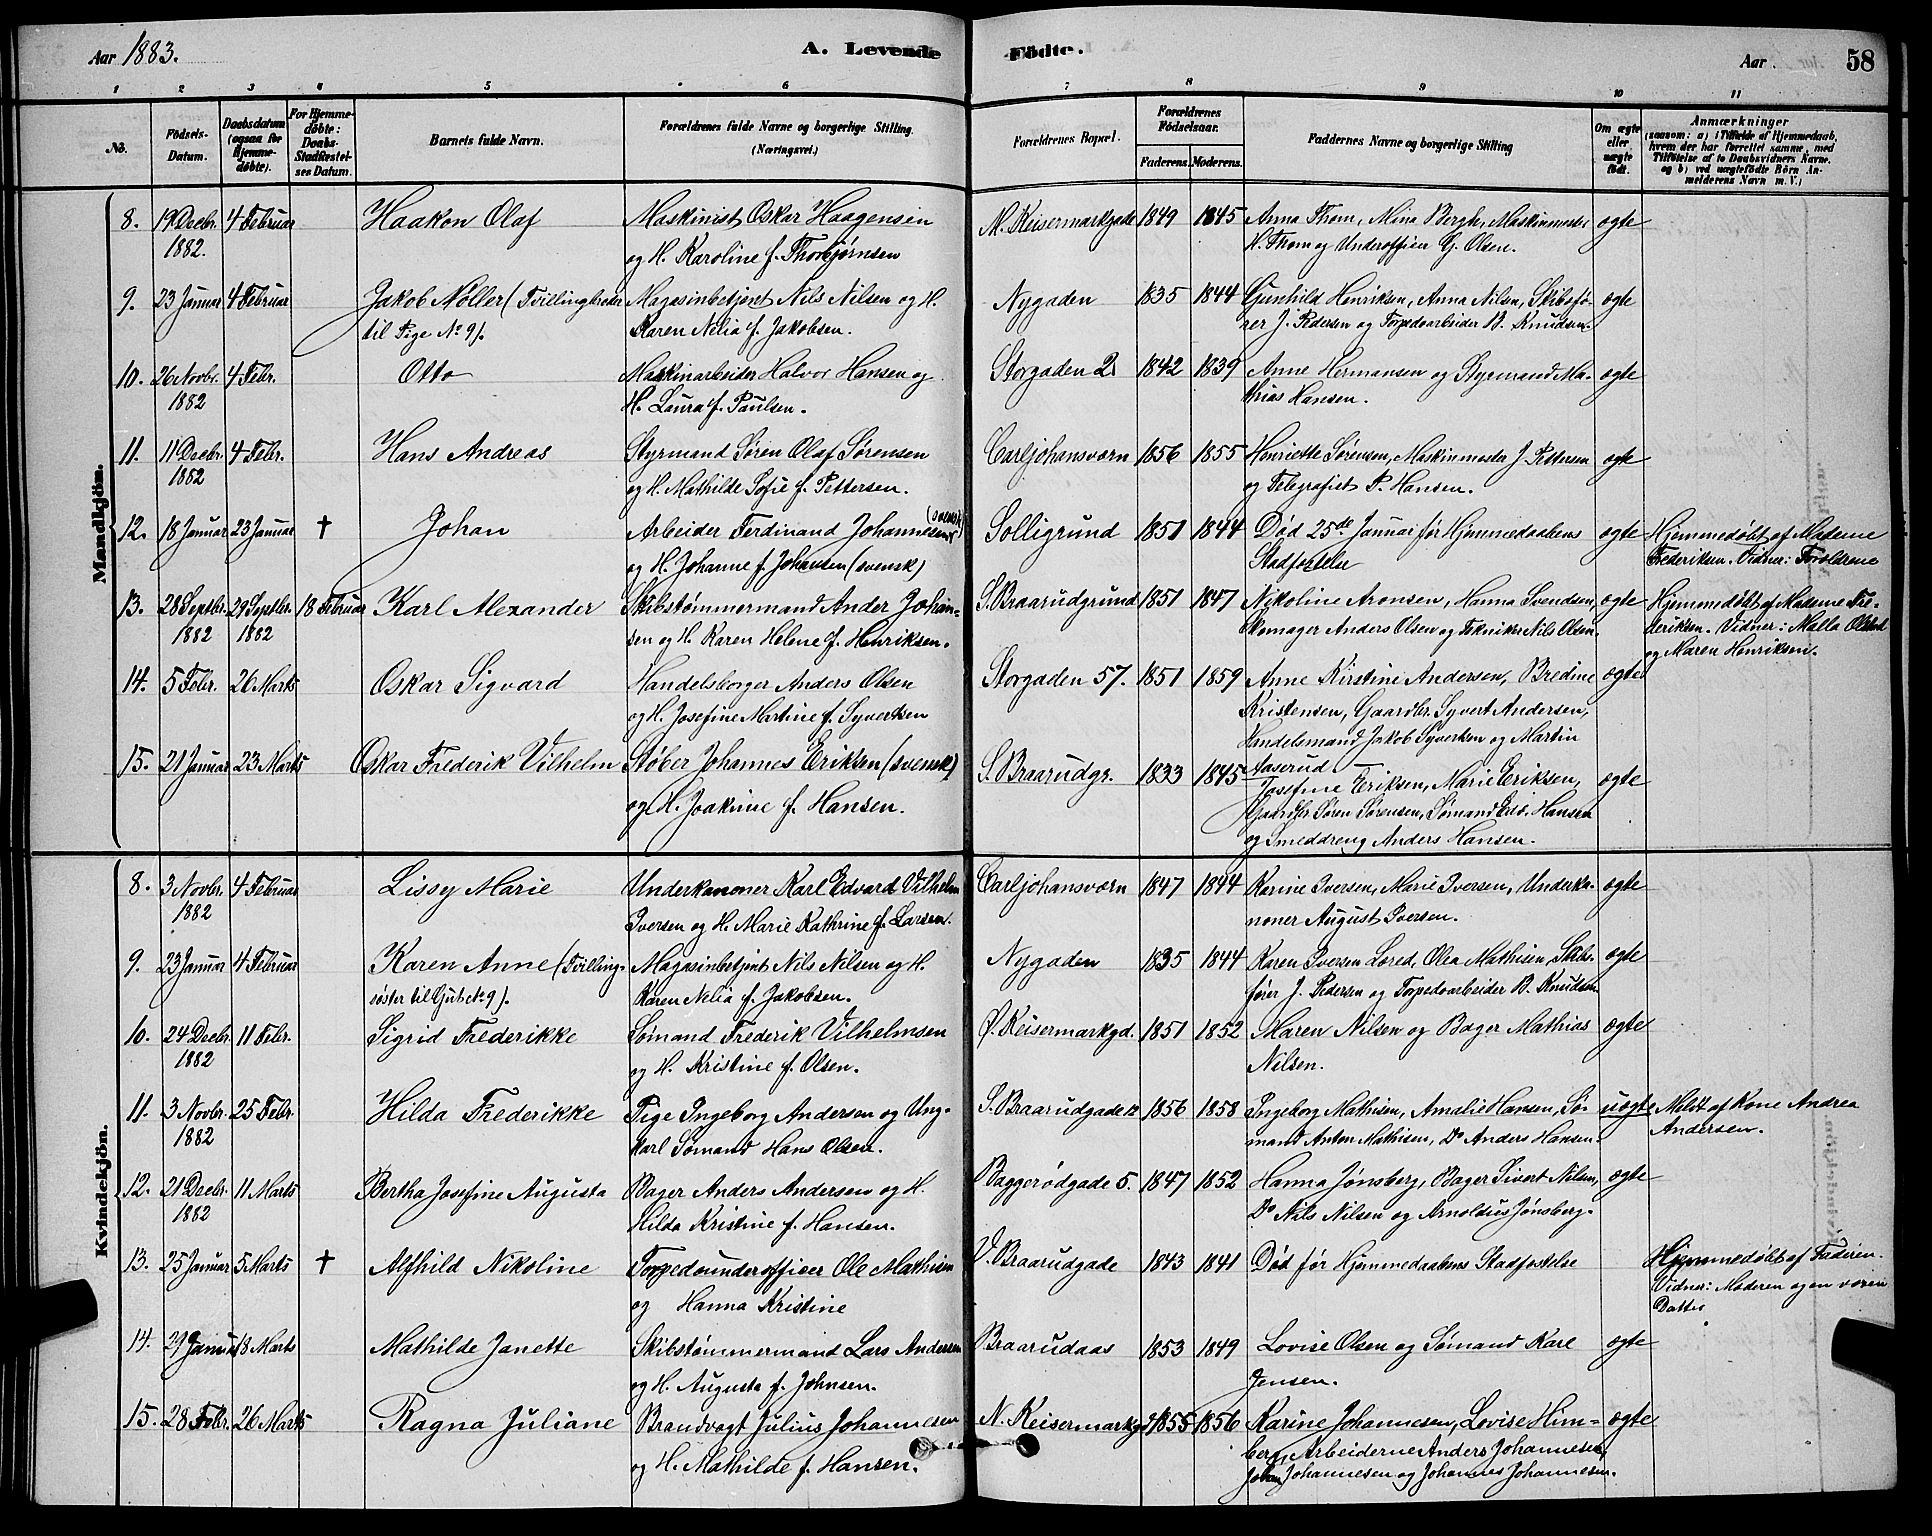 Aar 1883.
A. Levende
Födte.
Aar
58
1 2 3 4 5 6 7 8 9 10 11
No.
Födsels-Datum.
Daabsdatum (ogsaa for Hjemme-døbte).
For Hjemme-døbte: Daabs-Stadfæstel-ses Datum.
Barnets fulde Navn.
Forældrenes fulde Navne og borgerlige Stilling. (Næringsvei.)
Forældrenes Bopæl.
Forældrenes Födselsaar.
Faderens. Moderens.
Faddernes Navne og borgerlige Stilling
Om ægte eller uægte født.
Anmærkninger
(saasom: a) i Tilfælde af Hjemmedaab,
hvem der har forrettet samme, med
Tilføielse af to Daabsvidners Navne,
og b) ved uægtefødte Børn An-
melderens Navn m. V.)
Mandkjön.
8. 19 Decbr. 4 Februar Haakon Olaf Maskinist Oskar Haagensen N. Keisermarkgade 1849 1845 Anna Thom, Mina Bergh, Maskinmester ægte
1882. og H. Karoline f. Thorbjørnsen H. Thom og Underofficer G. Olsen.
9. 23 Januar 4 Februar Jakob Møller (Tvillingbroder Magasinbetjent Nils Nilsen og H. Nygaden 1835 1844 Gunhild Henriksen, Anna Nilsen, Skibsfø- ægte
til Pige No 9). Karen Nelia f. Jakobsen. rer J. Pedersen og Torpedoarbeider B. Knudsen.
10. 26 Novbr. 4 Febr. Otto Maskinarbeider Halvor Hansen og Storgaden 2 1842 1839 Anne Hermansen og Styrmand Ma- ægte
1882 H. Laura f. Paulsen. thias Hansen.
11. 11 Decbr. 4 Febr. Hans Andreas Styrmand Søren Olaf Sørensen Carljohansværn 1856 1855 Henriette Sørensen, Maskinmester J. Pettersen ægte
1882 og H. Mathilde Sofie f. Pettersen. og Telegrafist P. Hansen.
12. 18 Januar 23 Januar † Johan Arbeider Ferdinand Johannesen (svensk) Solligrund 1851 1844 Død 25de Januar før Hjemmedaabens ægte Hjemmedøbt af Madame
og H. Johanne f. Johansen (svensk) Stadfæstelse Frederiksen. Vidner: Forældrene
13. 28 Septbr. 29 Septbr. 18 Februar Karl Alexander Skibstømmermand Ander Johan- S. Braarudgrund 1851 1847 Nikoline Aronsen, Hanna Svendsen, ægte Hjemmedøbt af Madame Fre-
1882 1882 sen og H. Karen Helene f. Henriksen. Skomager Anders Olsen og Tekniker Nils Olsen. deriksen. Vidner: Malla Olstad
og Maren Henriksen.
14. 5 Febr. 26 Marts Oskar Sigvard Handelsborger Anders Olsen Storgaden 57. 1851 1859 Anne Kirstine Andersen, Bredine ægte
og H. Josefine Martine f. Syvertsen Kristensen, Gaardbr. Syvert Andersen,
Handelsmand Jakob Syvertsen og Martin
Aaserud
15. 21 Januar 23 Marts Oskar Frederik Vilhelm Støber Johannes Eriksen (svensk) S. Braarudgr. 1833 1845 Josefine Eriksen, Marie Eriksen, ægte
og H. Joakime f. Hansen. Gaardbr. Søren Sørensen, Sømand Edv. Hansen
og Smeddreng Anders Hansen.
Kvindekjön.
8. 3 Novbr. 4 Februar Lissy Marie Underkanoner Karl Edvard Vilhelm Carljohansværn 1847 1844 Karine Iversen, Marie Iversen, Underka- ægte
1882 Iversen og H. Marie Kathrine f. Larsen. noner August Iversen.
9. 23 Januar 4 Februar Karen Anne (Tvilling- Magasinbetjent Nils Nilsen og H. Nygaden 1835 1844 Karen Iversen Løred, Olea Mathisen, Skibs- ægte
søster til Gut No 9). Karen Nelia f. Jakobsen. fører J. Pedersen og Torpedoarbeider B. Knudsen
10. 24 Decbr. 11 Febr. Sigrid Frederikke Sømand Frederik Vilhelmsen Ø. Keisermarkgd. 1851 1852 Maren Nilsen og Bager Mathias ægte
1882 og H. Kristine f. Olsen. Nilsen.
11. 3 Novbr. 25 Febr. Hilda Frederikke Pige Ingeborg Andersen og Ung- S. Braarudgade 12 1856 1858 Ingeborg Mathisen, Amalie Hansen, Sø- uægte Meldt af Kone Andrea
1882 karl Sømand Hans Olsen. mand Anton Mathisen, Do Anders Hansen. Andersen.
12. 21 Decbr. 11 Marts Bertha Josefine Augusta Bager Anders Andersen og H. Baggerødgade 5. 1847 1852 Hanna Jønsberg, Bager Sivert Nilsen, ægte
1882 Hilda Kristine f. Hansen. Do Nils Nilsen og Arnoldus Jønsberg.
13. 25 Januar 5 Marts † Alfhild Nikoline Torpedounderofficer Ole Mathisen V. Braarudgade 1843 1841 Død før Hjemmedaabens Stadfæstelse Hjemmedøbt af Faderen.
og Hanna Kristine Vidner: Moderen og en voxen
Datter
14. 29 Januar 18 Marts Mathilde Janette Skibstømmermand Lars Andersen Braarudaas 1853 1849 Lovise Olsen og Sømand Karl ægte
og H. Augusta f. Johnsen. Jensen.
15. 28 Febr. 26 Marts Ragna Juliane Brandvagt Julius Johannesen N. Keisermarkgd 1855 1856 Karine Johannesen, Lovise Him- ægte
og H. Mathilde f. Hansen. berg, Arbeiderne Anders Johannesen,
Johan Johannesen og Johannes Johannesen.